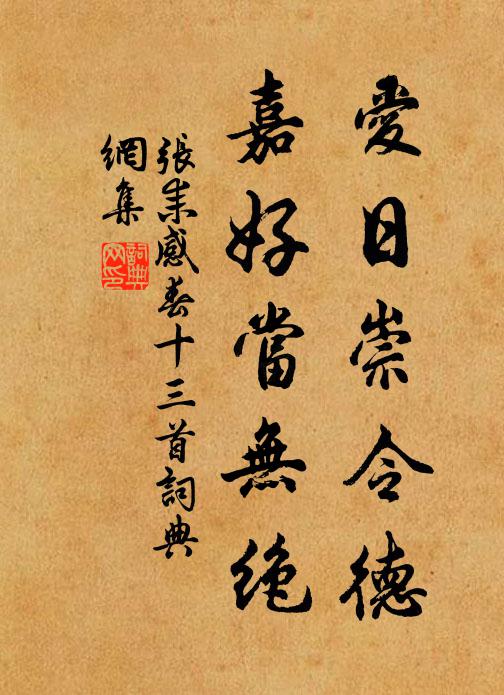 愛日崇令德
嘉好當無絕
張耒感春十三首詞典
網集
詞典網印